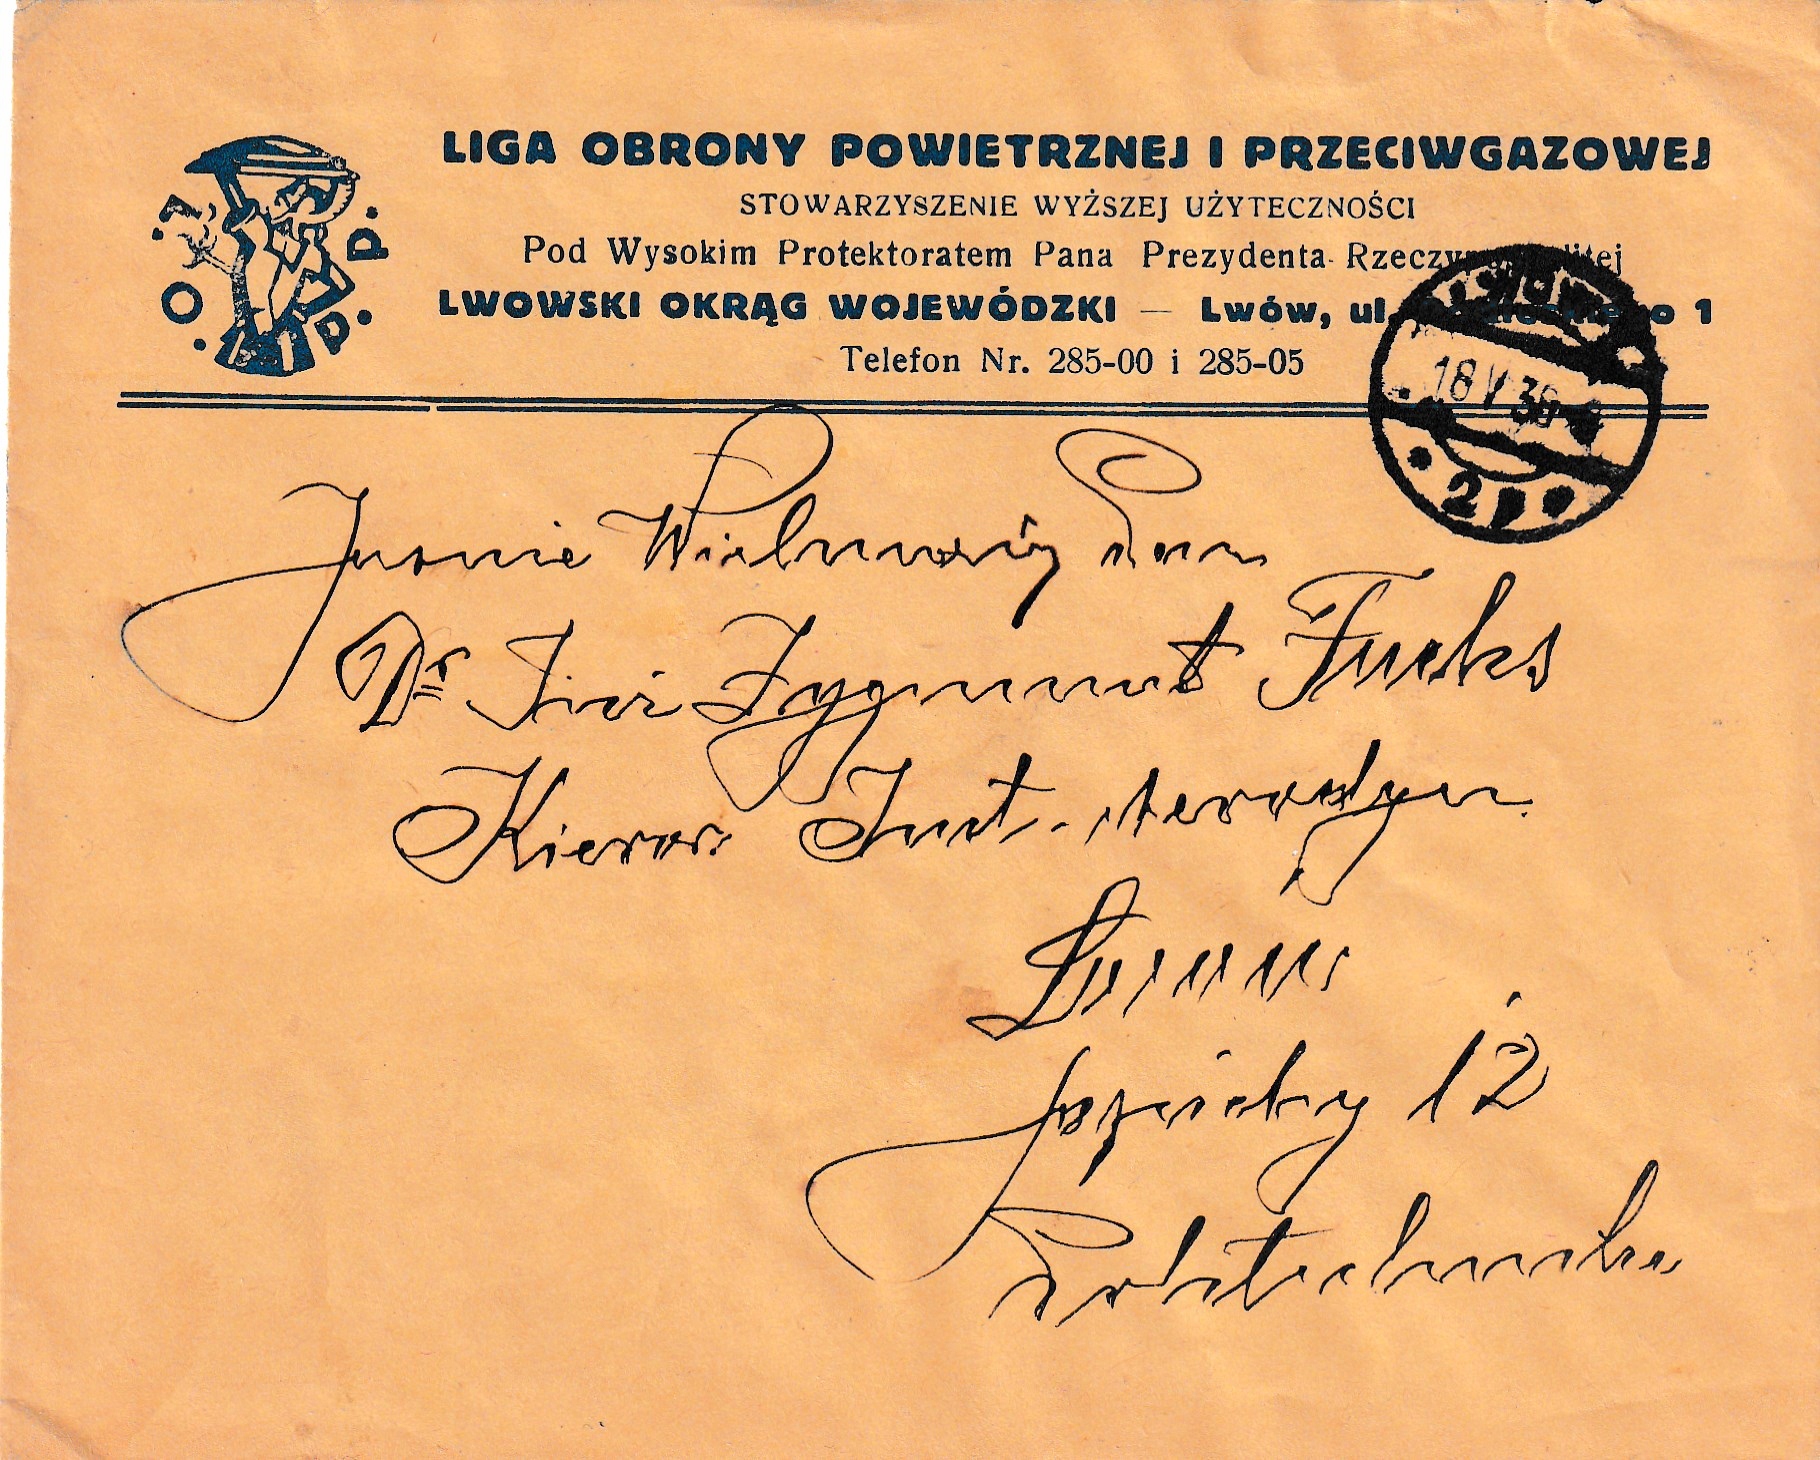 L. O. P. P.
LIGA OBRONY POWIETRZNEJ I PRZECIWGAZOWEJ
STOWARZYSZENIE WYŻSZEJ UŻYTECZNOŚCI
Pod Wysokim Protektoratem Pana Prezydenta Rzeczypospolitej
LWOWSKI OKRĄG WOJEWÓDZKI — Lwów, ul. 1
Telefon Nr. 285-00 i 285-05
18 V 38
2 p
Jaśnie Wielmożny Pan
Dr Inż Zygmunt Fuchs
Kierow. Inst. Aerodyn.
Lwów
12
Politechnika